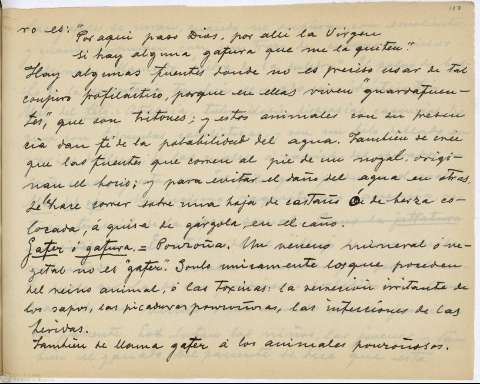 ro es: "Por aquí paso Dios, por allí la Virgen
si hay alguna gafura que me la quiten."
Hay algunas fuentes donde no es preciso usar de tal
conjuro profiláctico, porque en ellas viven "guardafuen-
tes", que son tritones; y estos animales con su presen-
cia dan fé de la potabilidad del agua. También se cree
que las fuentes que corren al pie de un nogal, origi-
nan el bocio; y para evitar el daño del agua en otras,
se le hace correr sobre una hoja de castaño ó de berza co-
locada, á guisa de gárgola, en el caño.
Gafez ó gafura = Ponzoña. Un veneno mineral ó ve-
getal no es "gafez". Sonlo unicamente los que proceden
del reino animal, ó las toxinas: la secreción irritante de
los sapos, las picaduras ponzoñosas, las infecciones de las
heridas.
También se llama gafez á los animales ponzoñosos.